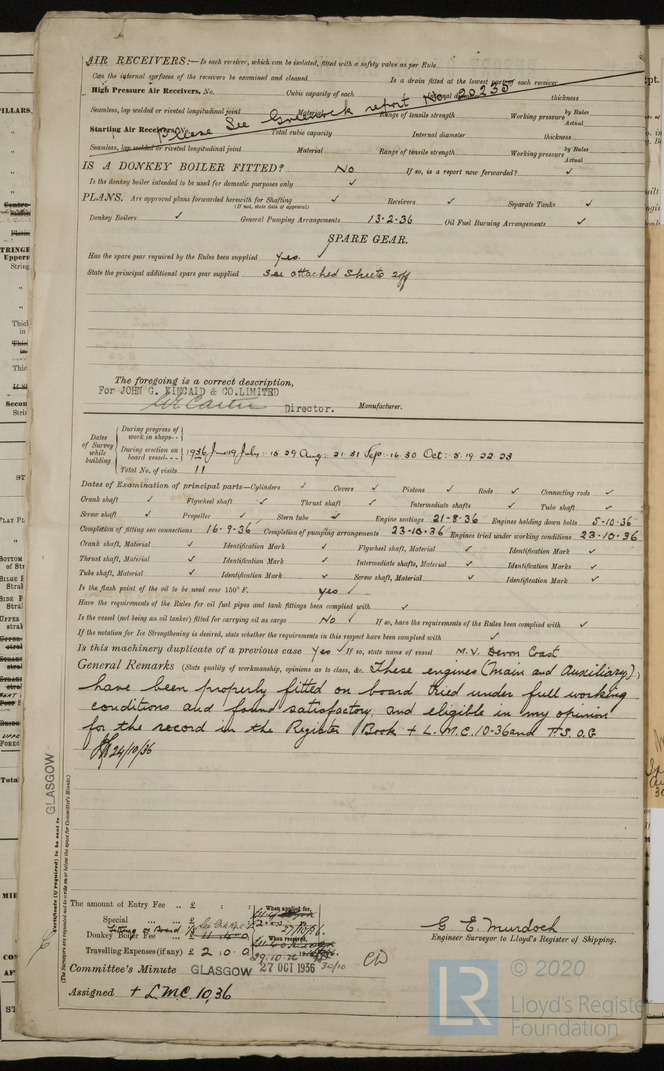 AIR RECEIVERS:—Is each receiver, which can be isolated, fitted with a safety valve as per Rule
Can the internal surfaces of the receivers be examined and cleaned Is a drain fitted at the lowest part of each receiver
High Pressure Air Receivers, No. Cubic capacity of each Internal diameter thickness
Seamless, lap welded or riveted longitudinal joint Material Range of tensile strength Working pressure by Rules Actual
Please See Greenock report No. 20235
Starting Air Receivers, No. Total cubic capacity Internal diameter thickness
Seamless, lap welded or riveted longitudinal joint Material Range of tensile strength Working pressure by Rules Actual
IS A DONKEY BOILER FITTED? No If so, is a report now forwarded? ✓
Is the donkey boiler intended to be used for domestic purposes only ✓
PLANS. Are approved plans forwarded herewith for Shafting ✓ Receivers ✓ Separate Tanks ✓
(If not, state date of approval)
Donkey Boilers ✓ General Pumping Arrangements 13·2·36 Oil Fuel Burning Arrangements ✓
SPARE GEAR.
Has the spare gear required by the Rules been supplied yes.
State the principal additional spare gear supplied see attached sheets 2off
The foregoing is a correct description,
For JOHN G. KINCAID & CO.LIMITED
Director. Manufacturer.
Dates of Survey while building
During progress of work in shops - -
During erection on board vessel - - - 1936 June 19 July: 15·29 Aug: 21·31 Sep: 16·30 Oct: 5·19·22·23
Total No. of visits 11
Dates of Examination of principal parts—Cylinders ✓ Covers ✓ Pistons ✓ Rods ✓ Connecting rods ✓
Crank shaft ✓ Flywheel shaft ✓ Thrust shaft ✓ Intermediate shafts ✓ Tube shaft ✓
Screw shaft ✓ Propeller ✓ Stern tube ✓ Engine seatings 21-8-36 Engines holding down bolts 5-10-36
Completion of fitting sea connections 16-9-36 Completion of pumping arrangements 23-10-36 Engines tried under working conditions 23-10-36
Crank shaft, Material ✓ Identification Mark ✓ Flywheel shaft, Material ✓ Identification Mark ✓
Thrust shaft, Material ✓ Identification Mark ✓ Intermediate shafts, Material ✓ Identification Marks ✓
Tube shaft, Material ✓ Identification Mark ✓ Screw shaft, Material ✓ Identification Mark ✓
Is the flash point of the oil to be used over 150° F. yes ✓
Have the requirements of the Rules for oil fuel pipes and tank fittings been complied with ✓
Is the vessel (not being an oil tanker) fitted for carrying oil as cargo No ✓ If so, have the requirements of the Rules been complied with ✓
If the notation for Ice Strengthening is desired, state whether the requirements in this respect have been complied with ✓
Is this machinery duplicate of a previous case yes ✓ If so, state name of vessel M.V. Devon Coast
General Remarks (State quality of workmanship, opinions as to class, &c. These engines (Main and Auxiliary)
have been properly fitted on board tried under full working
conditions and found satisfactory, and eligible in my opinion
for the record in the Register Book + L.M.C. 10-36 and T.S.O.G
24/10/36
GLASGOW
Certificate (if required) to be sent to
(The Surveyors are requested not to write on or below the space for Committee's Minute.)
The amount of Entry Fee .. £ : :
Special ... ... £
Fitting on Board
Donkey Boiler Fee ... £
Travelling Expenses (if any) £ 2 : 0 : 0
When applied for,
27/10/36.
When received,
G. E. Murdoch
Engineer Surveyor to Lloyd's Register of Shipping.
Committee's Minute GLASGOW 27 OCT 1936 30/10
Assigned + L.M.C. 10,36
LR © 2020
Lloyd's Register
Foundation